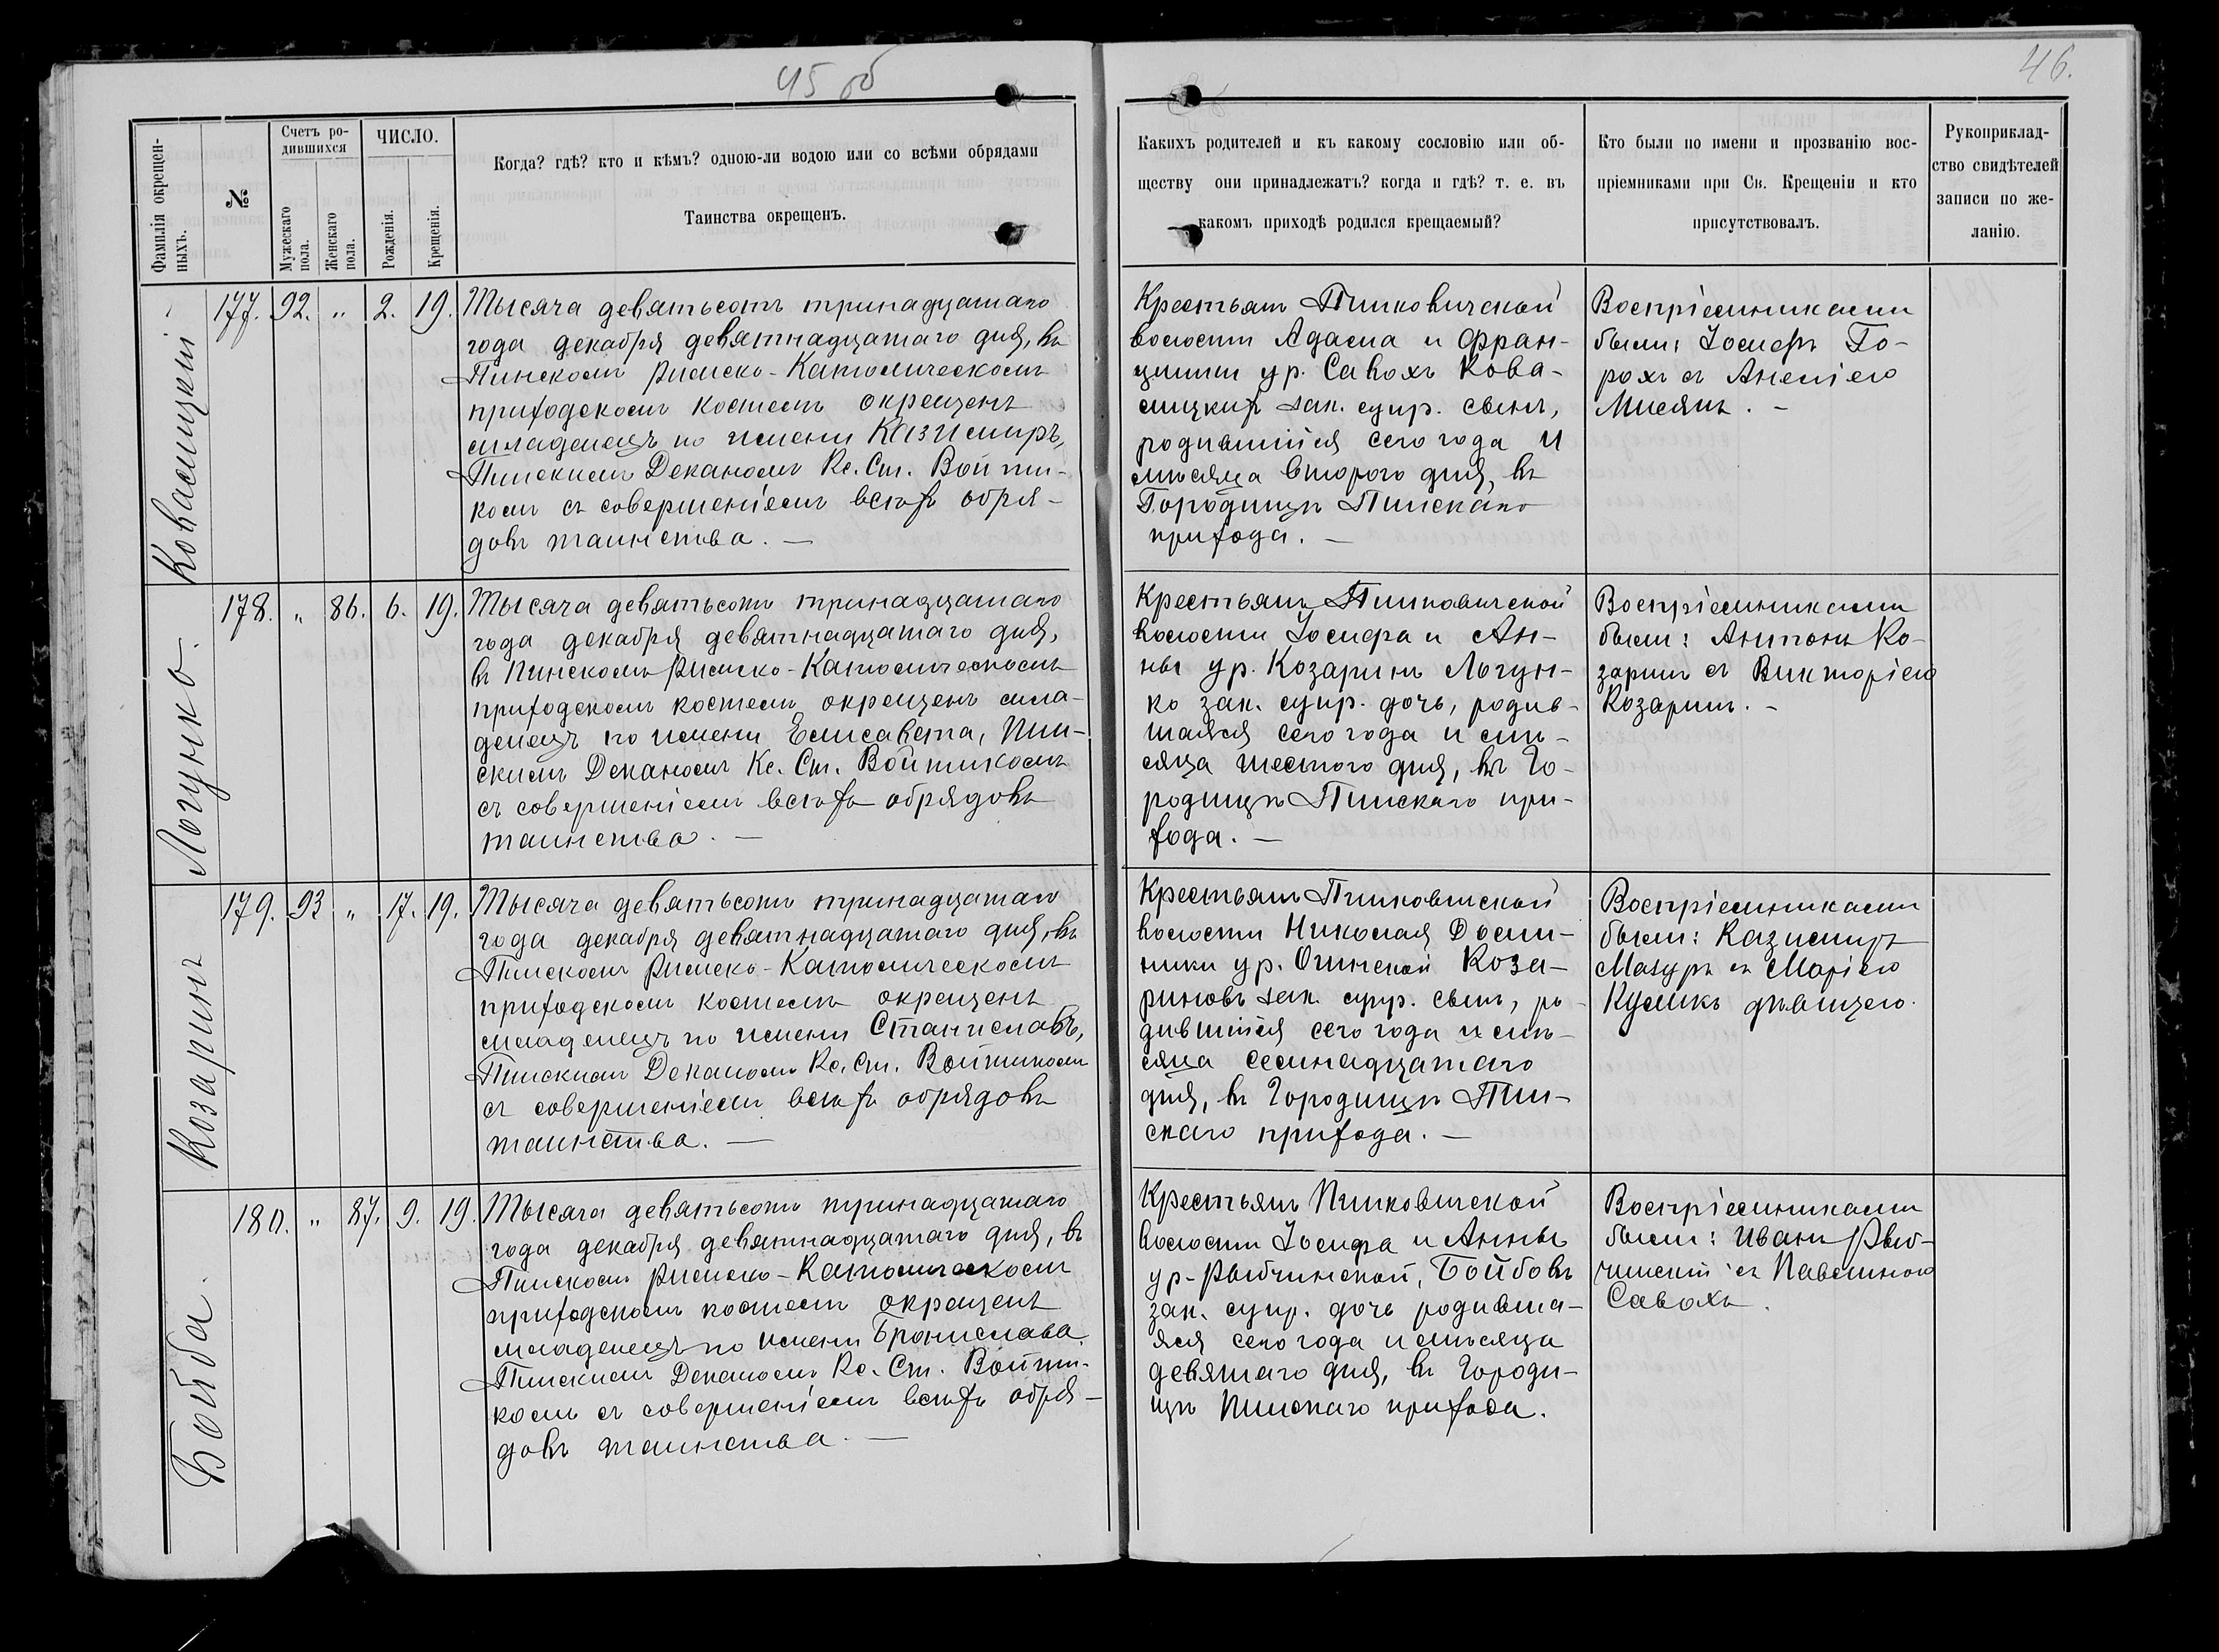 45 об
46.
Фамилія окрещен-
ныхъ.
№
Счетъ ро-
дившихся
Мужескаго
пола.
Женскаго
пола.
ЧИСЛО.
Рожденія.
Крещенія.
Когда? гдѣ? кто и кѣмъ? одною-ли водою или со всѣми обрядами
Таинства окрещенъ.
Какихъ родителей и къ какому сословію или об-
ществу они принадлежатъ? когда и гдѣ? т. е. въ
какомъ приходѣ родился крещаемый?
Кто были по имени и прозванію вос-
пріемниками при Св. Крещеніи и кто
присутствовалъ.
Рукоприклад-
ство свидѣтелей
записи по же-
ланію.
Ковалицкій
177. 92. " 2. 19.
Тысяча девятьсотъ тринадцатаго
года декабря девятнадцатаго дня, въ
Пинскомъ Римско-Католическомъ
приходскомъ костелѣ окрещенъ
младенецъ по имени Казимиръ,
Пинскимъ Деканомъ Кс. Ст. Войти-
комъ съ совершеніемъ всѣхъ обря-
довъ таинства. —
Крестьянъ Пинковичской
волости Адама и Фран-
цишки ур. Савохъ Кова-
лицкихъ зак. супр. сынъ,
родившійся сего года и
мѣсяца второго дня, въ
Городищѣ Пинскаго
прихода. —
Воспріемниками
были: Іосифъ Го-
рохъ съ Анеліею
. —
Логунко.
178. " 86. 6. 19.
Тысяча девятьсотъ тринадцатаго
года декабря девятнадцатаго дня,
въ Пинскомъ Римско-Католическомъ
приходскомъ костелѣ окрещенъ мла-
денецъ по имени Елисавета, Пин-
скимъ Деканомъ Кс. Ст. Войтикомъ
съ совершеніемъ всѣхъ обрядовъ
таинства. —
Крестьянъ Пинковичской
волости Іосифа и Ан-
ны ур. Козаринъ Логун-
ко зак. супр. дочь, родив-
шаяся сего года и мѣ-
сяца шестого дня, въ Го-
родищѣ Пинскаго при-
хода. —
Воспріемниками
были: Антонъ Ко-
заринъ съ Викторіею
Козаринъ. —
Козаринъ
179. 93 " 17. 19.
Тысяча девятьсотъ тринадцатаго
года декабря девятнадцатаго дня, въ
Пинскомъ Римско-Католическомъ
приходскомъ костелѣ окрещенъ
младенецъ по имени Станиславъ,
Пинскимъ Деканомъ Кс. Ст. Войтикомъ
съ совершеніемъ всѣхъ обрядовъ
таинства. —
Крестьянъ Пинковичской
волости Николая Доми-
ники ур. Огинской Коза-
риновъ зак. супр. сынъ, ро-
дившійся сего года и мѣ-
сяца семнадцатаго
дня, въ Городищѣ Пин-
скаго прихода. —
Воспріемниками
были: Казимиръ
Мазуръ съ Маріею
Куликъ дѣвицею.
Бойба.
180. " 87. 9. 19.
Тысяча девятьсотъ тринадцатаго
года декабря девятнадцатаго дня, въ
Пинскомъ Римско-Католическомъ
приходскомъ костелѣ окрещенъ
младенецъ по имени Бронислава
Пинскимъ Деканомъ Кс. Ст. Войти-
комъ съ совершеніемъ всѣхъ обря-
довъ таинства. —
Крестьянъ Пинковичской
волости Іосифа и Анны
ур. Рыбчинской, Бойбовъ
зак. супр. дочь родивша-
яся сего года и мѣсяца
девятаго дня, въ Городи-
щѣ Пинскаго прихода.
Воспріемниками
были: Иванъ Рыб-
чинскій съ Павлиною
Савохъ.